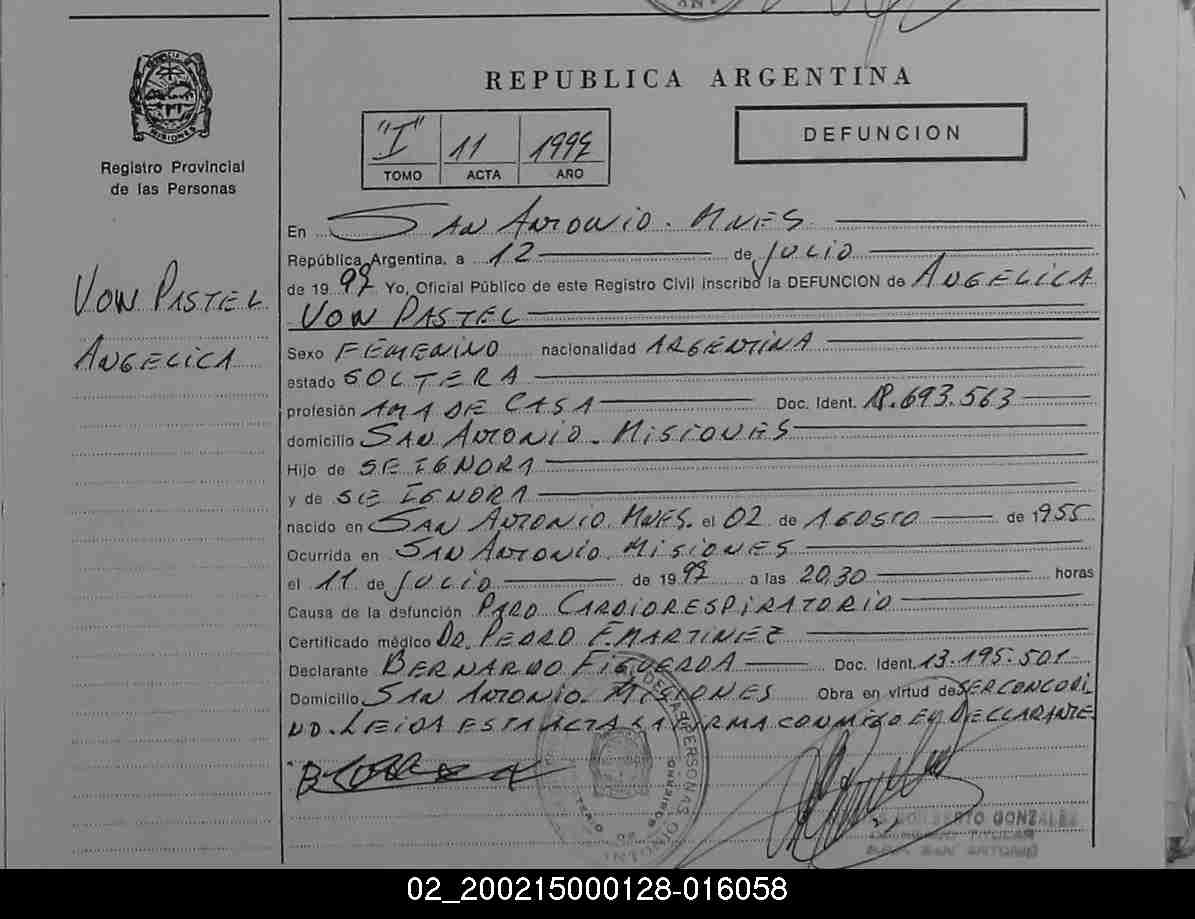 REPUBLICA ARGENTINA
DEFUNCION
"I" 11
TOMO ACTA AÑO
MISIONES
Registro Provincial
de las Personas
VON PASTEL
ANGELICA
En SAN ANTONIO. MNES
República Argentina, a 12 de JULIO
de 19 Yo, Oficial Público de este Registro Civil inscribo la DEFUNCION de ANGELICA
VON PASTEL
Sexo FEMENINO nacionalidad ARGENTINA
estado SOLTERA
profesión AMA DE CASA Doc. Ident. 18.693.563
domicilio SAN ANTONIO. MISIONES
Hijo de SE IGNORA
y de SE IGNORA
nacido en SAN ANTONIO. MNES. el 02 de AGOSTO de 1955
Ocurrida en SAN ANTONIO. MISIONES
el 11 de JULIO de 19 a las 20,30 horas
Causa de la defunción PARO CARDIORESPIRATORIO
Certificado médico DR. PEDRO F. MARTINEZ
Declarante BERNARDO FIGUEROA Doc. Ident. 13.195.501
Domicilio SAN ANTONIO. MISIONES Obra en virtud de SER CONCUBI
NO. LEIDA ESTA ACTA LA FIRMA CONMIGO EL DECLARANTE
DE LAS PERSONAS
GONZALEZ
TITULAR
SAN ANTONIO
02_200215000128-016058